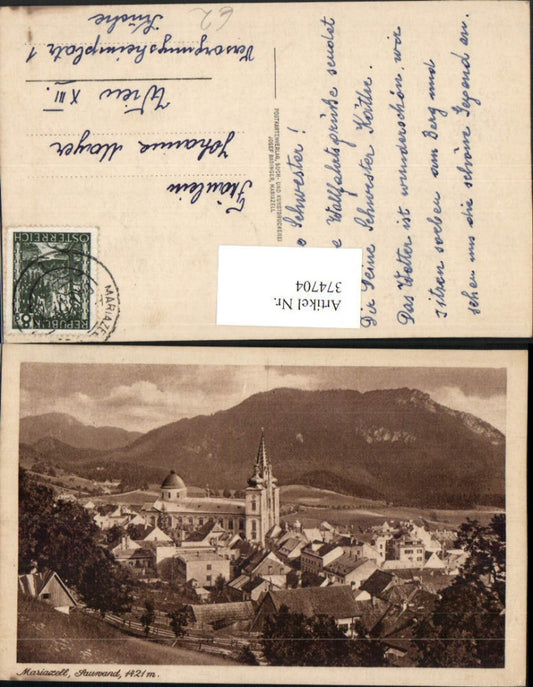 62
Fräulein
Johanna Mayer
Wien XIII.
Versorgungsheimplatz 1
Küche
POSTKARTENVERLAG, BUCH- UND KUNSTDRUCKEREI
JOSEF BUSINGER, MARIAZELL
Schwester!
Wallfahrtsgrüße sendet
Dir Deine Schwester Käthe.
Das Wetter ist wunderschön, wir
sitzen soeben am Berg und
sehen uns die schöne Gegend an.
Artikel Nr.
374704
REPUBLIK
ÖSTERREICH
8
MARIAZELL
Mariazell, Sauwand, 1421 m.